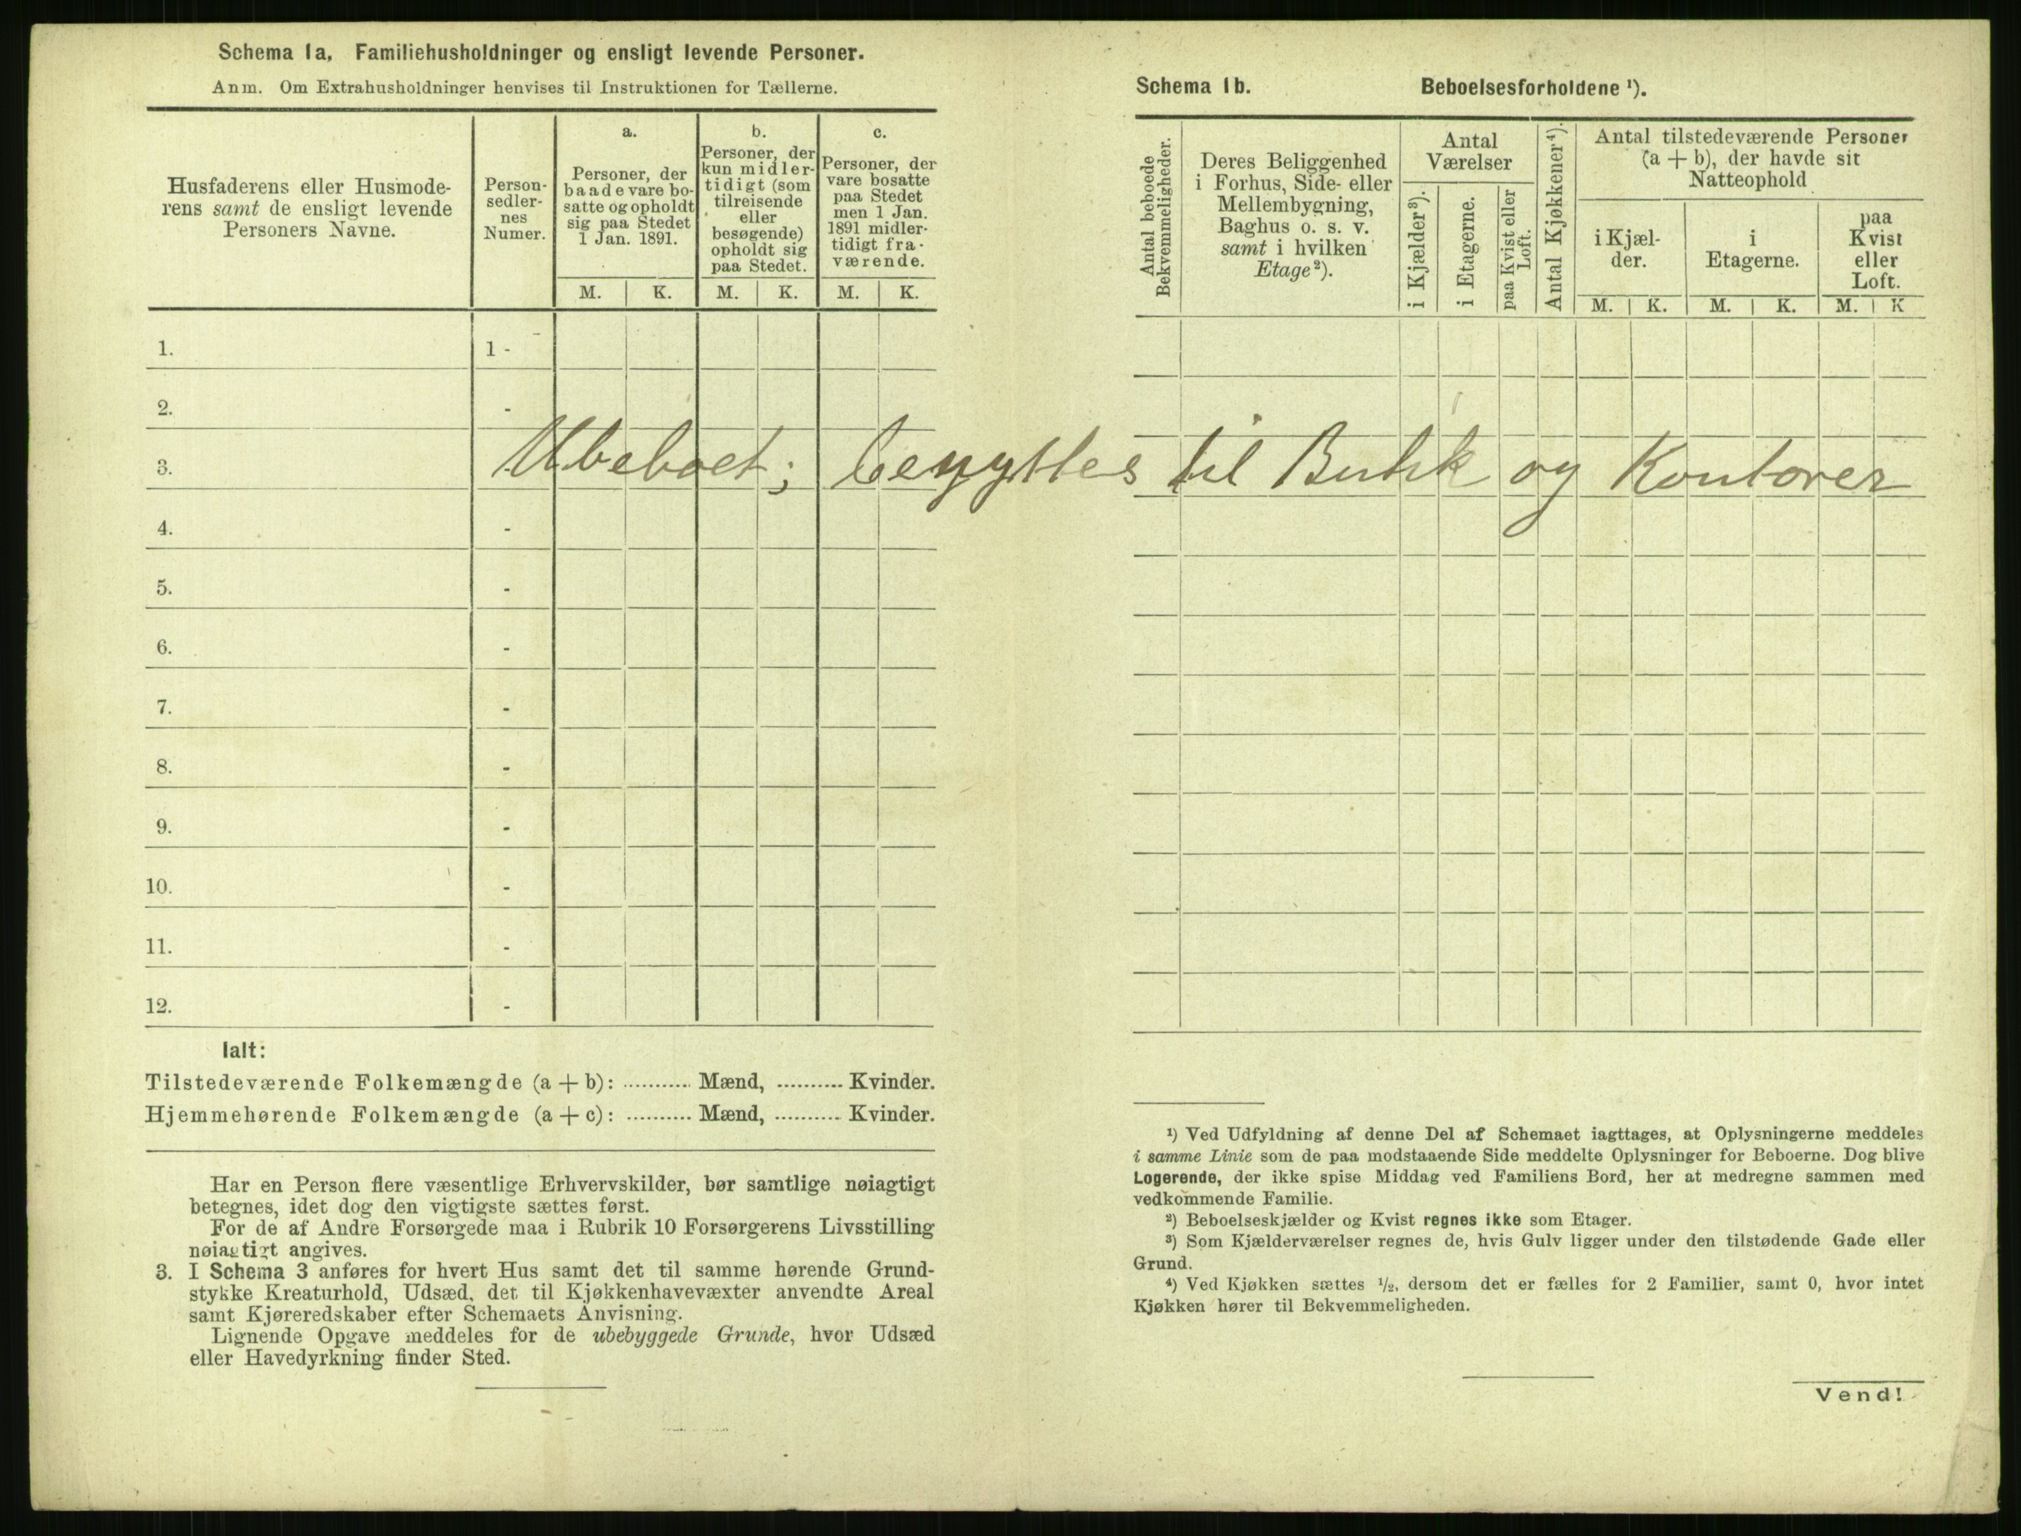 Schema Ia, Familiehusholdninger og ensligt levende Personer.
Anm. Om Extrahusholdninger henvises til Instruktionen for Tællerne.
Husfaderens eller Husmode-
rens samt de ensligt levende
Personers Navne.
Person-
sedler-
nes
Numer.
a.
Personer, der
baade vare bo-
satte og opholdt
sig paa Stedet
1 Jan. 1891.
M. K.
b.
Personer, der
kun midler-
tidigt (som
tilreisende
eller
besøgende)
opholdt sig
paa Stedet.
M. K.
c.
Personer, der
vare bosatte
paa Stedet
men 1 Jan.
1891 midler-
tidigt fra-
værende.
M. K.
1. 1 -
2. -
3.
Ubeboet; benyttes til Butik og Kontorer
4. -
5. -
6. -
7. -
8. -
9. -
10. -
11. -
12. -
Ialt:
Tilstedeværende Folkemængde (a + b): .......... Mænd, .......... Kvinder.
Hjemmehørende Folkemængde (a + c): .......... Mænd, .......... Kvinder.
Har en Person flere væsentlige Erhvervskilder, bør samtlige nøiagtigt
betegnes, idet dog den vigtigste sættes først.
For de af Andre Forsørgede maa i Rubrik 10 Forsørgerens Livsstilling
nøiagtigt angives.
3. I Schema 3 anføres for hvert Hus samt det til samme hørende Grund-
stykke Kreaturhold, Udsæd, det til Kjøkkenhavevæxter anvendte Areal
samt Kjøreredskaber efter Schemaets Anvisning.
Lignende Opgave meddeles for de ubebyggede Grunde, hvor Udsæd
eller Havedyrkning finder Sted.
Schema Ib. Beboelsesforholdene ¹).
Antal beboede
Bekvemmeligheder.
Deres Beliggenhed
i Forhus, Side- eller
Mellembygning,
Baghus o. s. v.
samt i hvilken
Etage²).
Antal
Værelser
i Kjælder³).
i Etagerne.
paa Kvist eller
Loft.
Antal Kjøkkener⁴).
Antal tilstedeværende Personer
(a + b), der havde sit
Natteophold
i Kjæl-
der.
M. K.
i
Etagerne.
M. K.
paa
Kvist
eller
Loft.
M. K
¹) Ved Udfyldning af denne Del af Schemaet iagttages, at Oplysningerne meddeles
i samme Linie som de paa modstaaende Side meddelte Oplysninger for Beboerne. Dog blive
Logerende, der ikke spise Middag ved Familiens Bord, her at medregne sammen med
vedkommende Familie.
²) Beboelseskjælder og Kvist regnes ikke som Etager.
³) Som Kjælderværelser regnes de, hvis Gulv ligger under den tilstødende Gade eller
Grund.
⁴) Ved Kjøkken sættes ½, dersom det er fælles for 2 Familier, samt 0, hvor intet
Kjøkken hører til Bekvemmeligheden.
Vend!